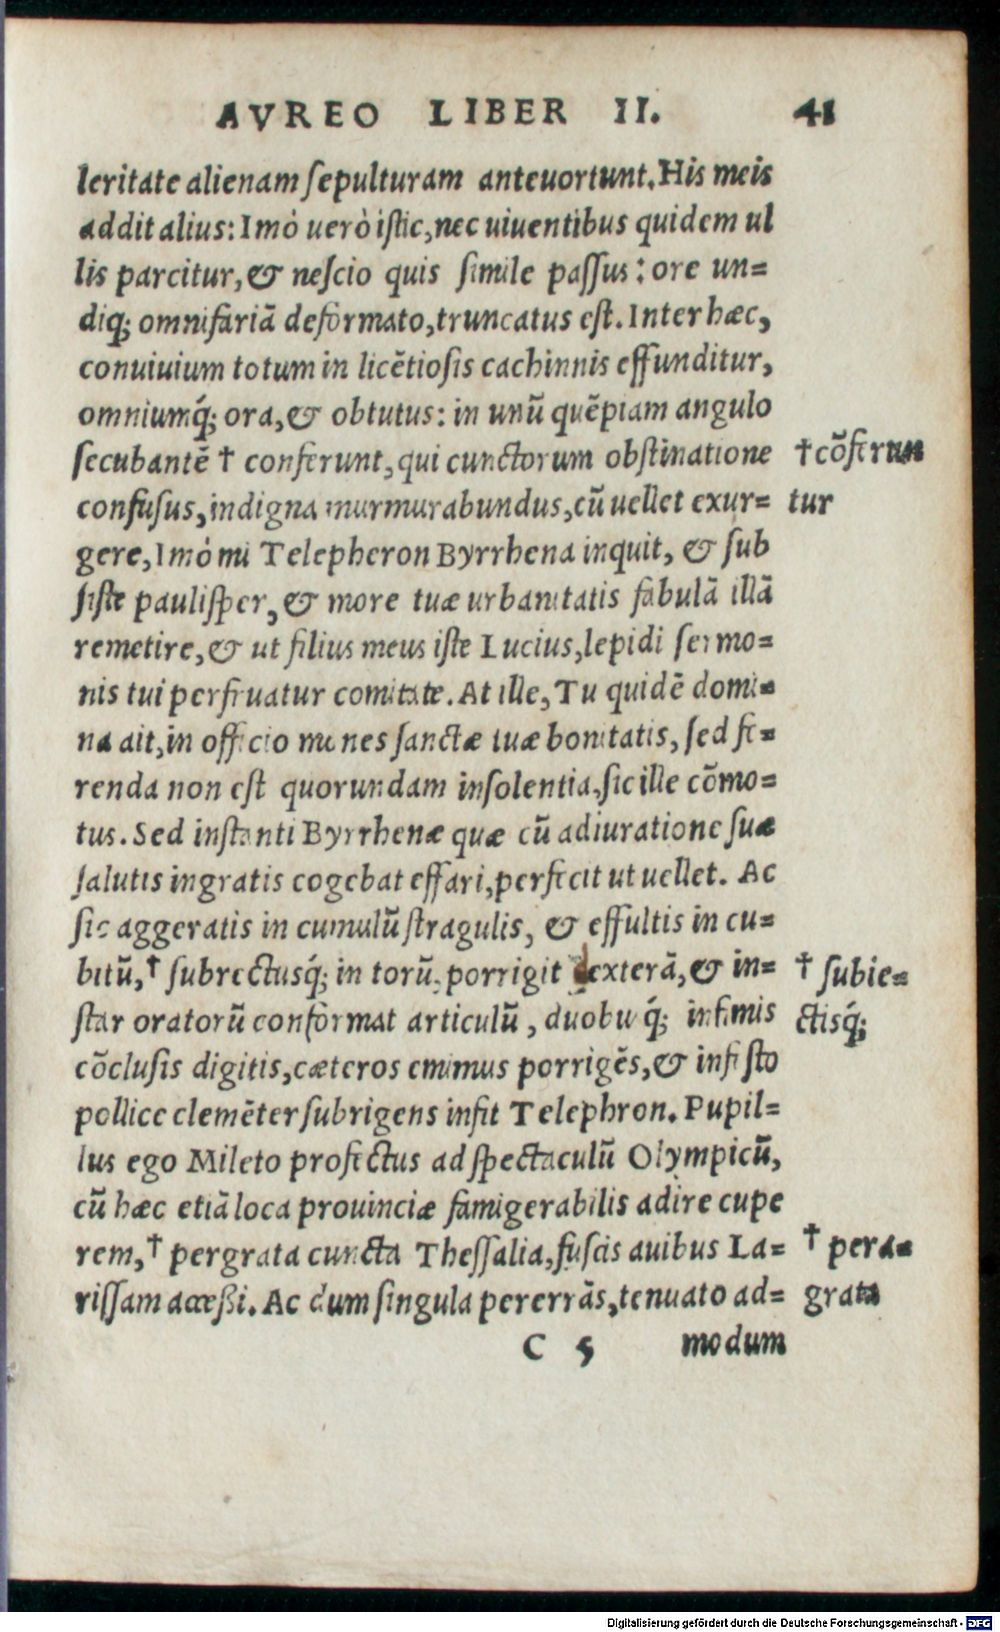 AVREO LIBER II. 41
leritate alienam ſepulturam anteuortunt. His meis
addit alius: Imò uerò iſtic, nec uiuentibus quidem ul
lis parcitur, & neſcio quis ſimile paſſus: ore un=
diq; omnifariā deformato, truncatus eſt. Inter hæc,
conuiuium totum in licētiosis cachinnis effunditur,
omniumq́; ora, & obtutus: in unū quēpiam angulo
ſecubantē † conferunt, qui cunctorum obſtinatione
†cōferun
confuſus, indigna murmurabundus, cū uellet exur=
tur
gere, Imò mi Telepheron Byrrhena inquit, & ſub
ſiſte pauliſper, & more tuæ urbanitatis fabulā illā
remetire, & ut filius meus iſte Lucius, lepidi ſermo=
nis tui perfruatur comitate. At ille, Tu quidē domi=
na ait, in officio manes ſanctæ tuæ bonitatis, ſed fe=
renda non eſt quorundam inſolentia, ſic ille cōmo=
tus. Sed inſtanti Byrrhenæ quæ cū adiuratione ſuæ
ſalutis ingratis cogebat effari, perfecit ut uellet. Ac
ſic aggeratis in cumulū ſtragulis, & effultis in cu=
bitū, † ſubrectusq́; in torū, porrigit dexterā, & in=
† ſubie=
ſtar oratorū conformat articulū, duobusq́; infimis
ctisq́;
cōcluſis digitis, cæteros eminus porrigēs, & infeſto
pollice clemēter ſubrigens infit Telephron. Pupil=
lus ego Mileto profectus ad ſpectaculū Olympicū,
cū hæc etiā loca prouinciæ famigerabilis adire cupe
rem, † pergrata cuncta Theſſalia, fuſcis auibus La=
† pera=
riſſam acceßi. Ac dum ſingula pererrās, tenuato ad=
grata
C 5 modum
Digitalisierung gefördert durch die Deutsche Forschungsgemeinschaft - DFG